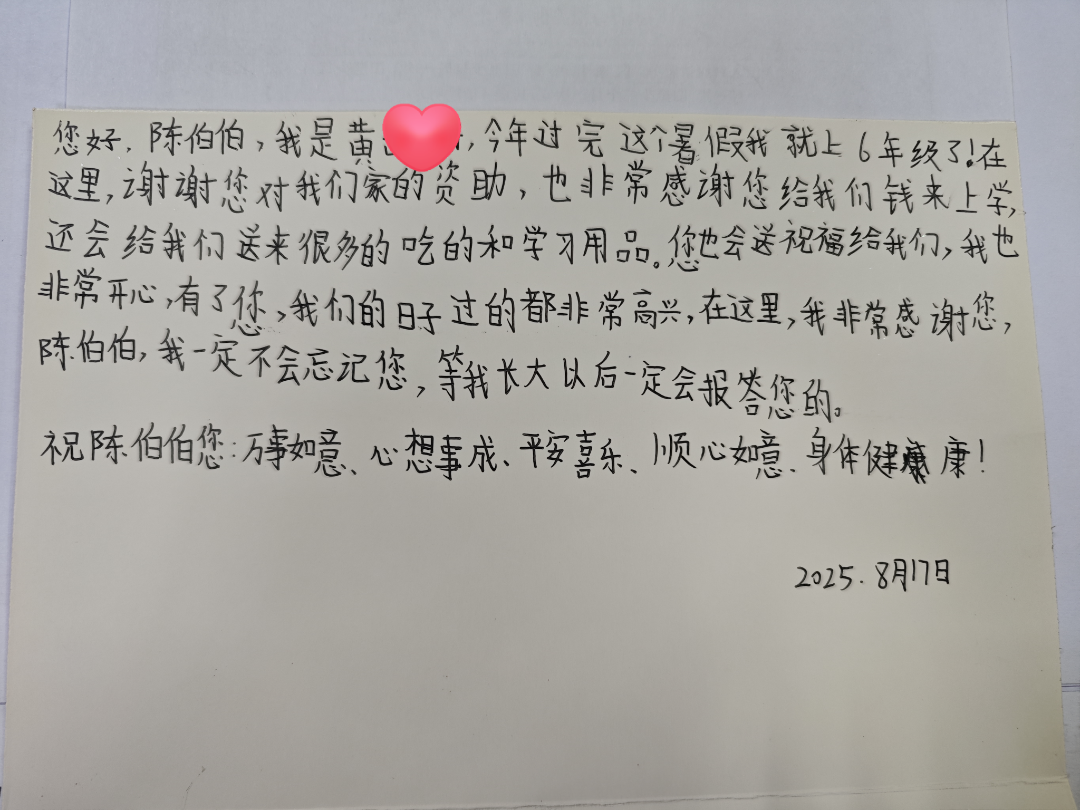 您好，陈伯伯，我是黄，今年过完这个暑假我就上6年级了！在
这里，谢谢您对我们家的资助，也非常感谢您给我们钱来上学，
还会给我们送来很多的吃的和学习用品。您也会送祝福给我们，我也
非常开心，有了您，我们的日子过的都非常高兴，在这里，我非常感谢您，
陈伯伯，我一定不会忘记您，等我长大以后一定会报答您的。
祝陈伯伯您：万事如意、心想事成、平安喜乐、顺心如意、身体健康！
2025.8月17日